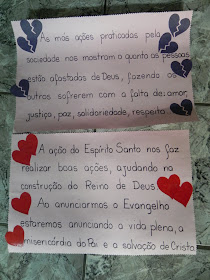 As más ações praticadas pela
sociedade nos mostram o quanto as pessoas
estão afastadas de Deus, fazendo os
outros sofrerem com a falta de: amor,
justiça, paz, solidariedade, respeito...
A ação do Espírito Santo nos faz
realizar boas ações, ajudando na
construção do Reino de Deus.
Ao anunciarmos o Evangelho
estaremos anunciando a vida plena, a
misericórdia do Pai e a salvação de Cristo